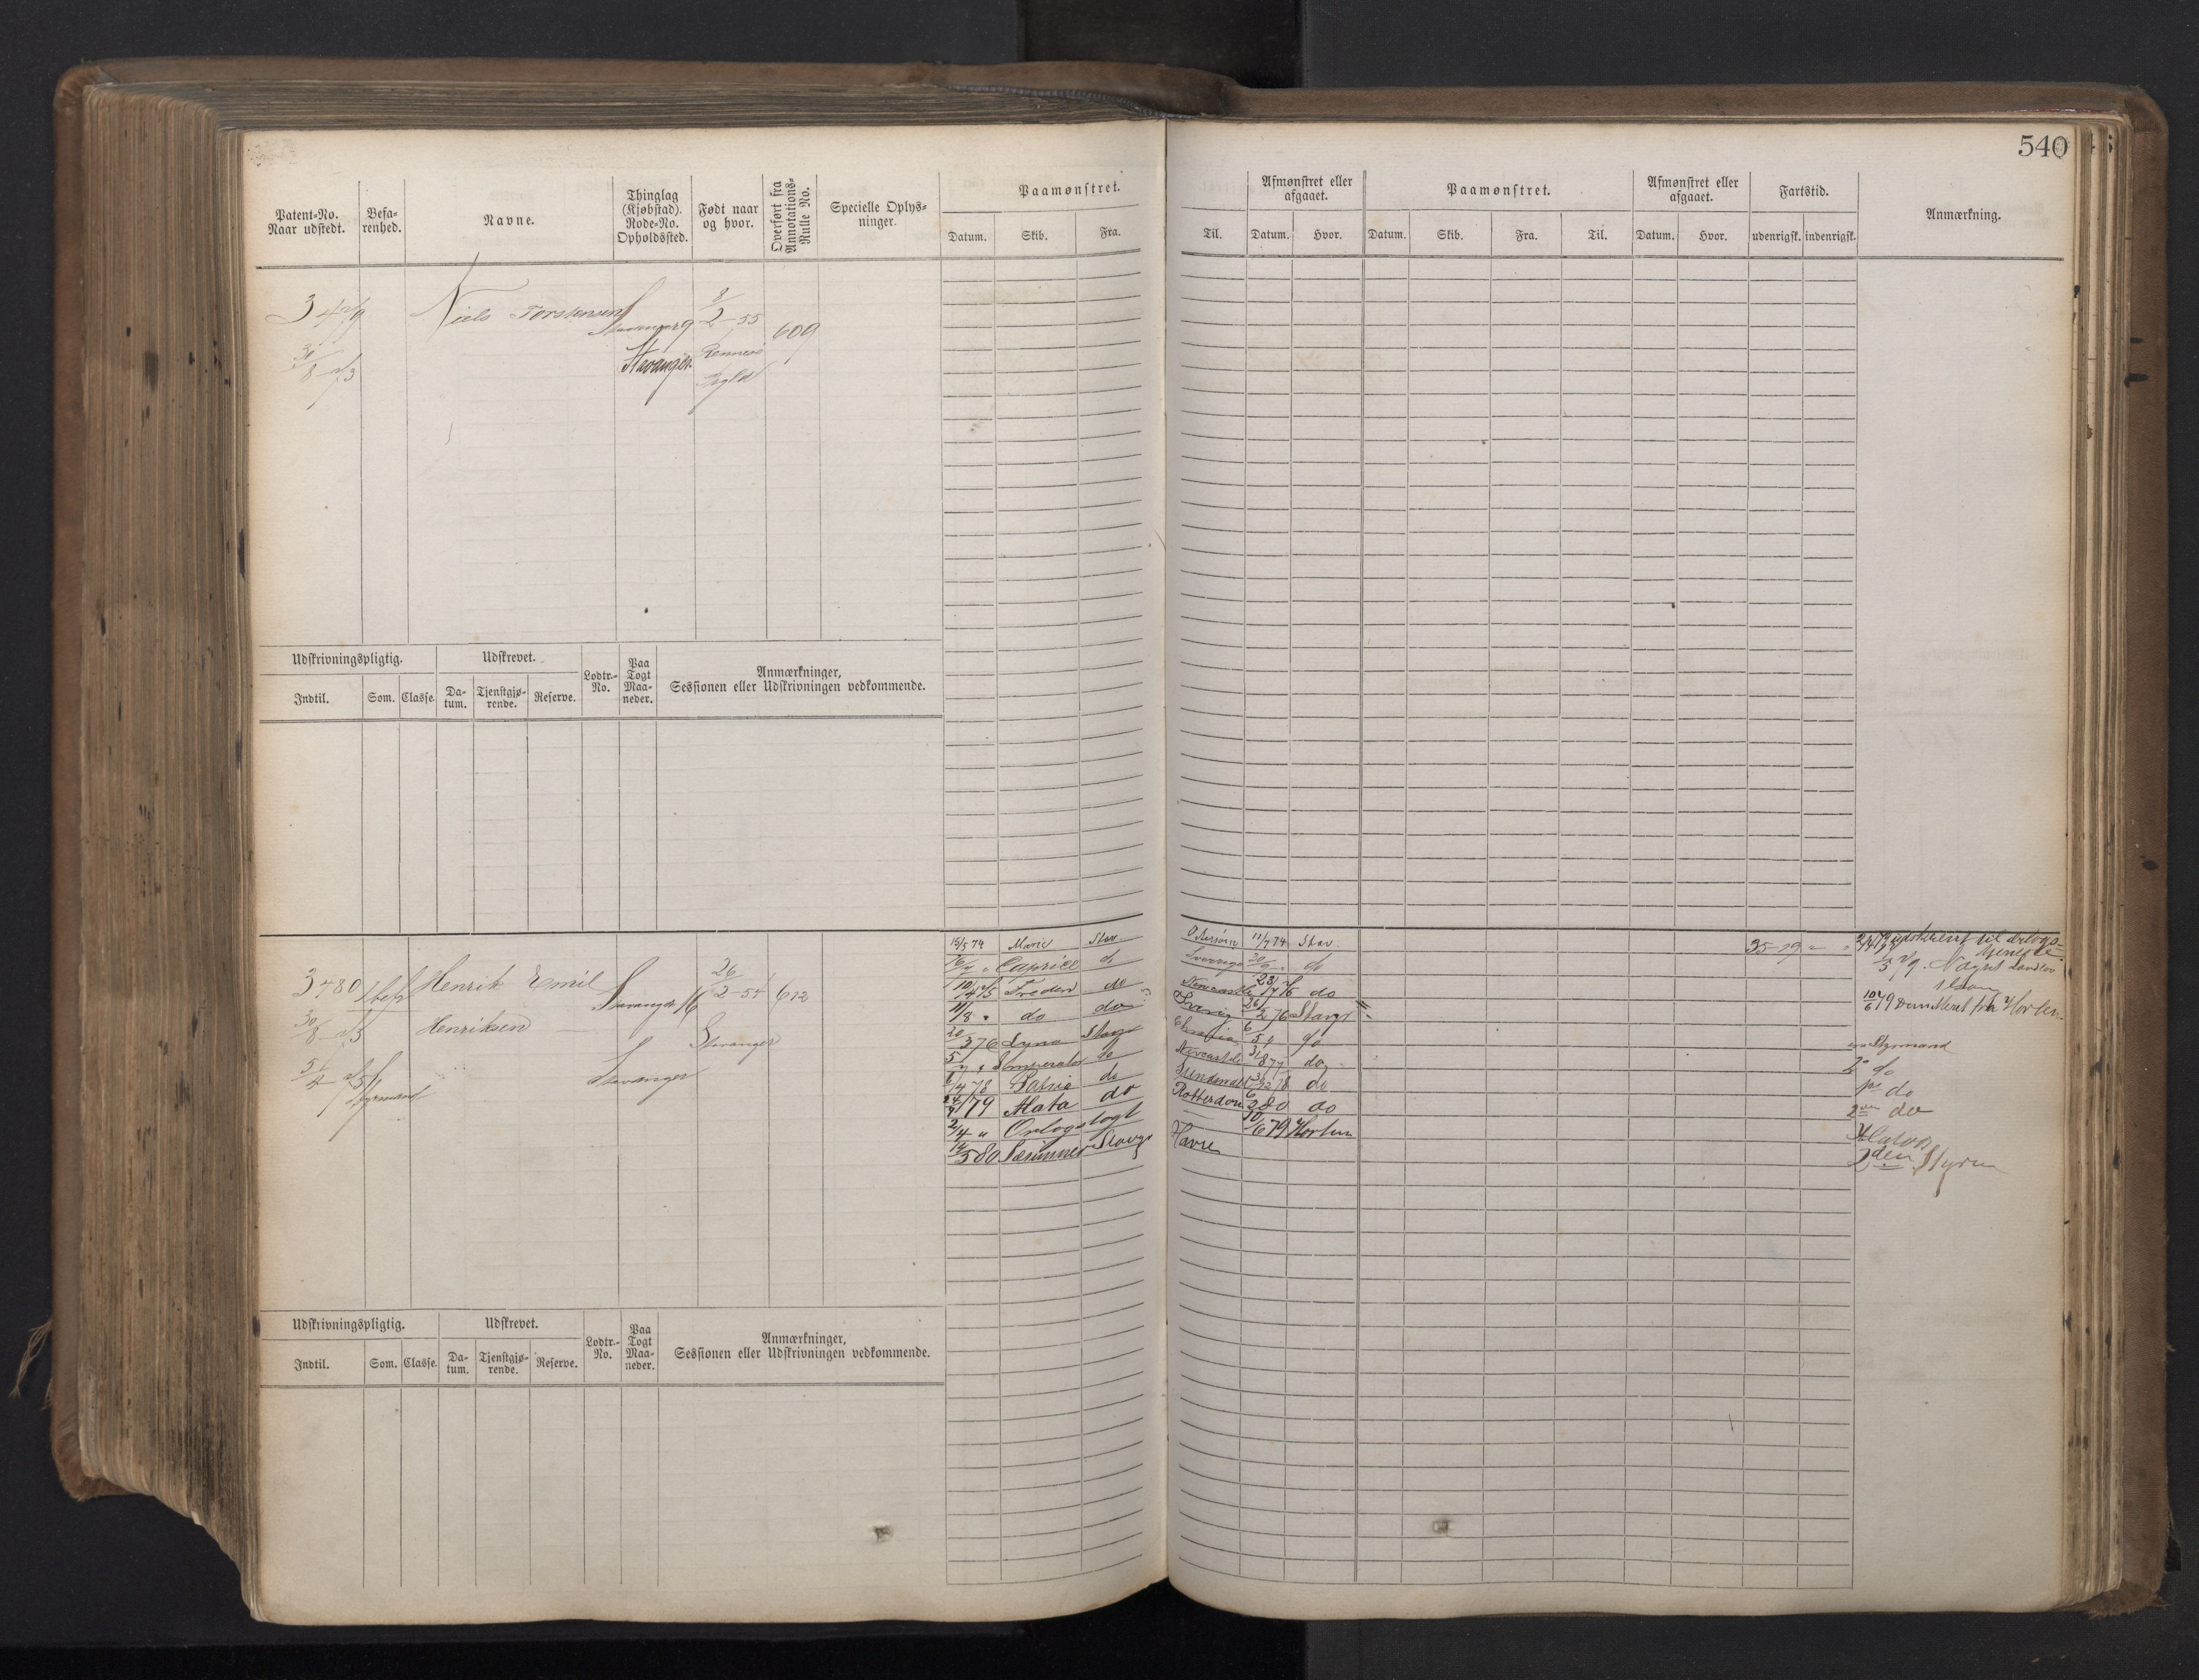 540
Patent-No. Naar udstedt.
Befarenhed.
Navne.
Thinglag (Kjøbstad). Rode-No. Opholdssted.
Født naar og hvor.
Overført fra Annotations-Rulle No.
Specielle Oplysninger.
Paamønstret.
Datum. Skib. Fra. Til.
Afmønstret eller afgaaet.
Datum. Hvor.
Paamønstret.
Datum. Skib. Fra. Til.
Afmønstret eller afgaaet.
Datum. Hvor.
Fartstid.
udenrigsk. indenrigsk.
Anmærkning.
3479 Niels Torstensen Stavanger 9 2-55 609
30/8-73 Stavanger Rennesö
Udskrivningspligtig. Udskrevet. Lodtr.-No. Paa Togt Maaneder. Anmærkninger, Sessionen eller Udskrivningen vedkommende.
Indtil. Som. Classe. Datum. Tjenstgjørende. Reserve.
3480 Henrik Emil Stavanger 16 26/2-54 612
30/8-73 Henriksen Stavanger
Styrmand Stavanger
15/5 74 Marie Stav. Østersøen 11/7 74 Stav. 35-19
16/7 " Caprice do Sverrige 30/9 " do
Freden do Newcastle do
11/8 " do do 26/2 76 Stavgr
20/3 76 Stavgr 6/5 " do
5/7 " Imperator do Newcastle do
6/4 78 Patria do do
Alata do Rotterdam 6/2 80 do
2/4 " Orlogstogt 10/6 79 Horten
14/5 80 Særimner Stavgr Havre
2/4 79 udskrevet til Orlogstjeneste
10/6 79 Dimitteret fra Horten
Styrmand
2 do
do
2den do
2den Styrm
Udskrivningspligtig. Udskrevet. Lodtr.-No. Paa Togt Maaneder. Anmærkninger, Sessionen eller Udskrivningen vedkommende.
Indtil. Som. Classe. Datum. Tjenstgjørende. Reserve.